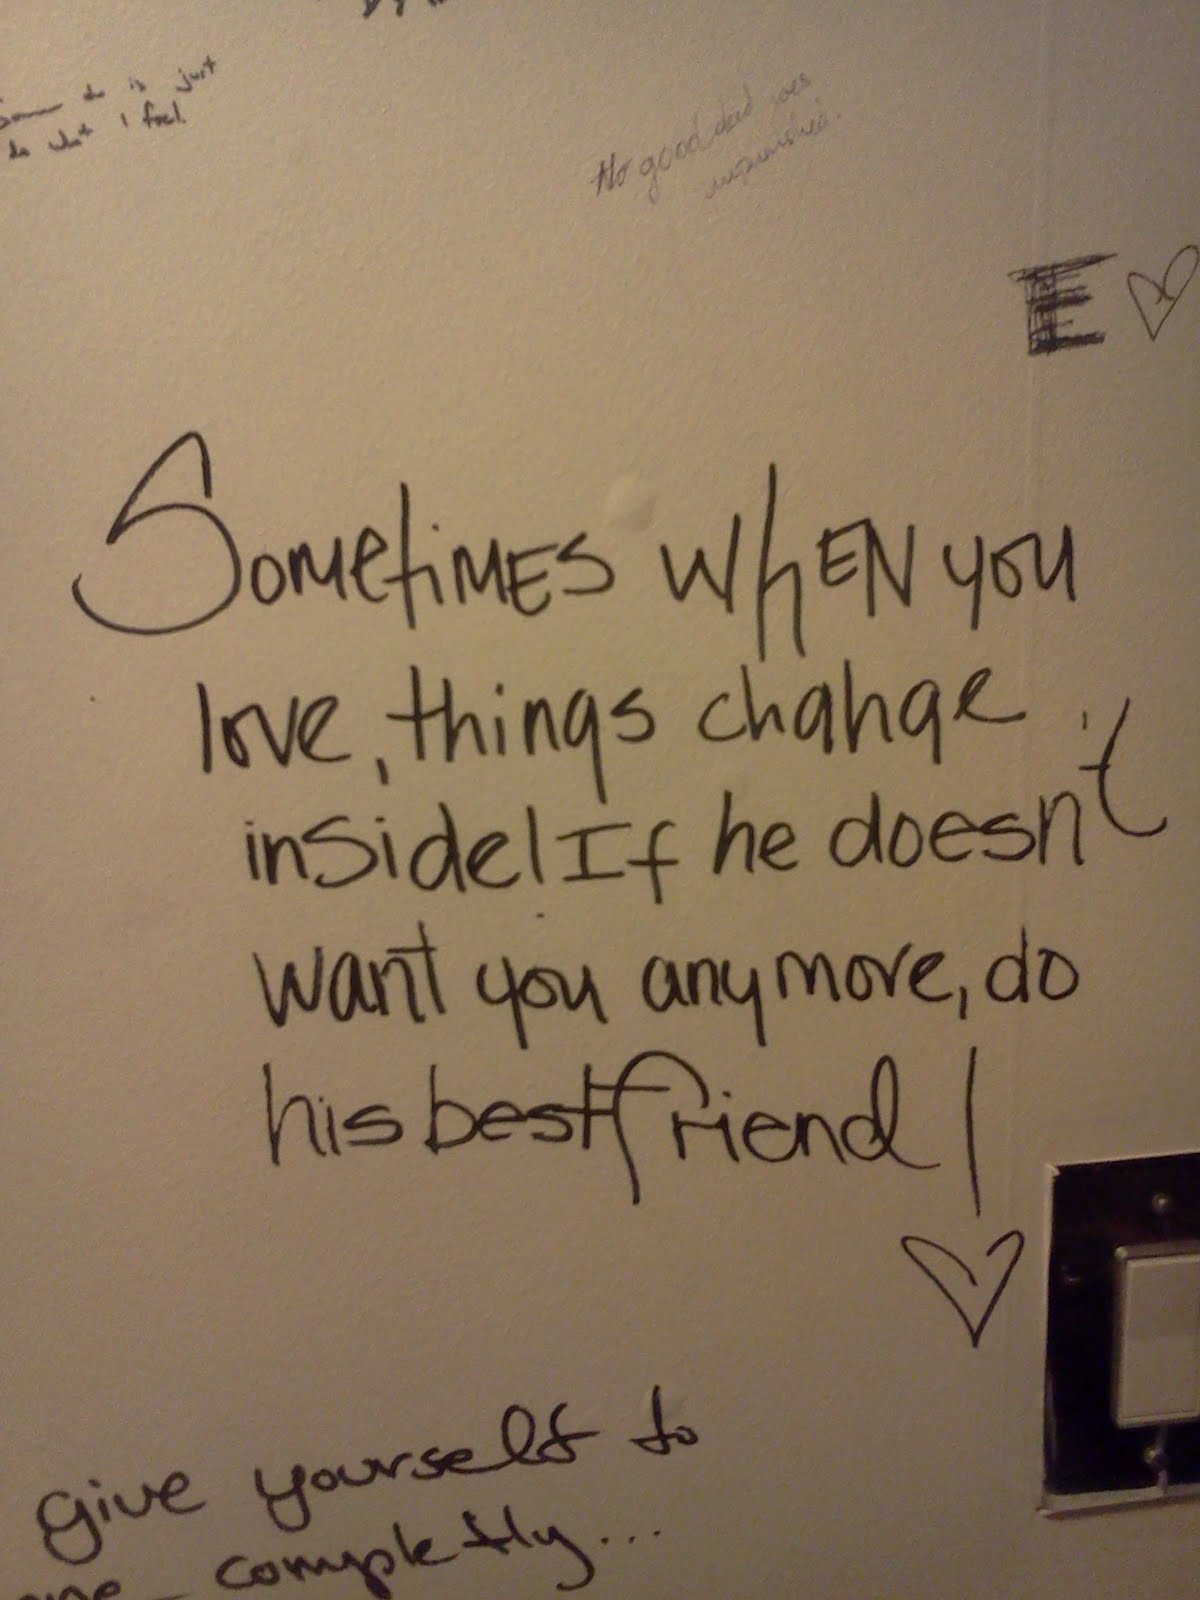 is just
do what I feel.
No good deed goes
unpunished.
E
Sometimes when you
love, things change
inside! If he doesn't
want you anymore, do
his best friend!
give yourself to
completly...